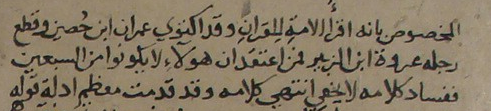 المخصوص بانه اقرأ الامة للقران وقد اكتوي عمران ابن حصين وقطع
رجله عروة ابن الزبير فمن اعتقد ان هولاء لا يكونوا من السبعين
ففساد كلامه لا يخفي انتهي كلامه وقد قدمت معظم ادلة قوله